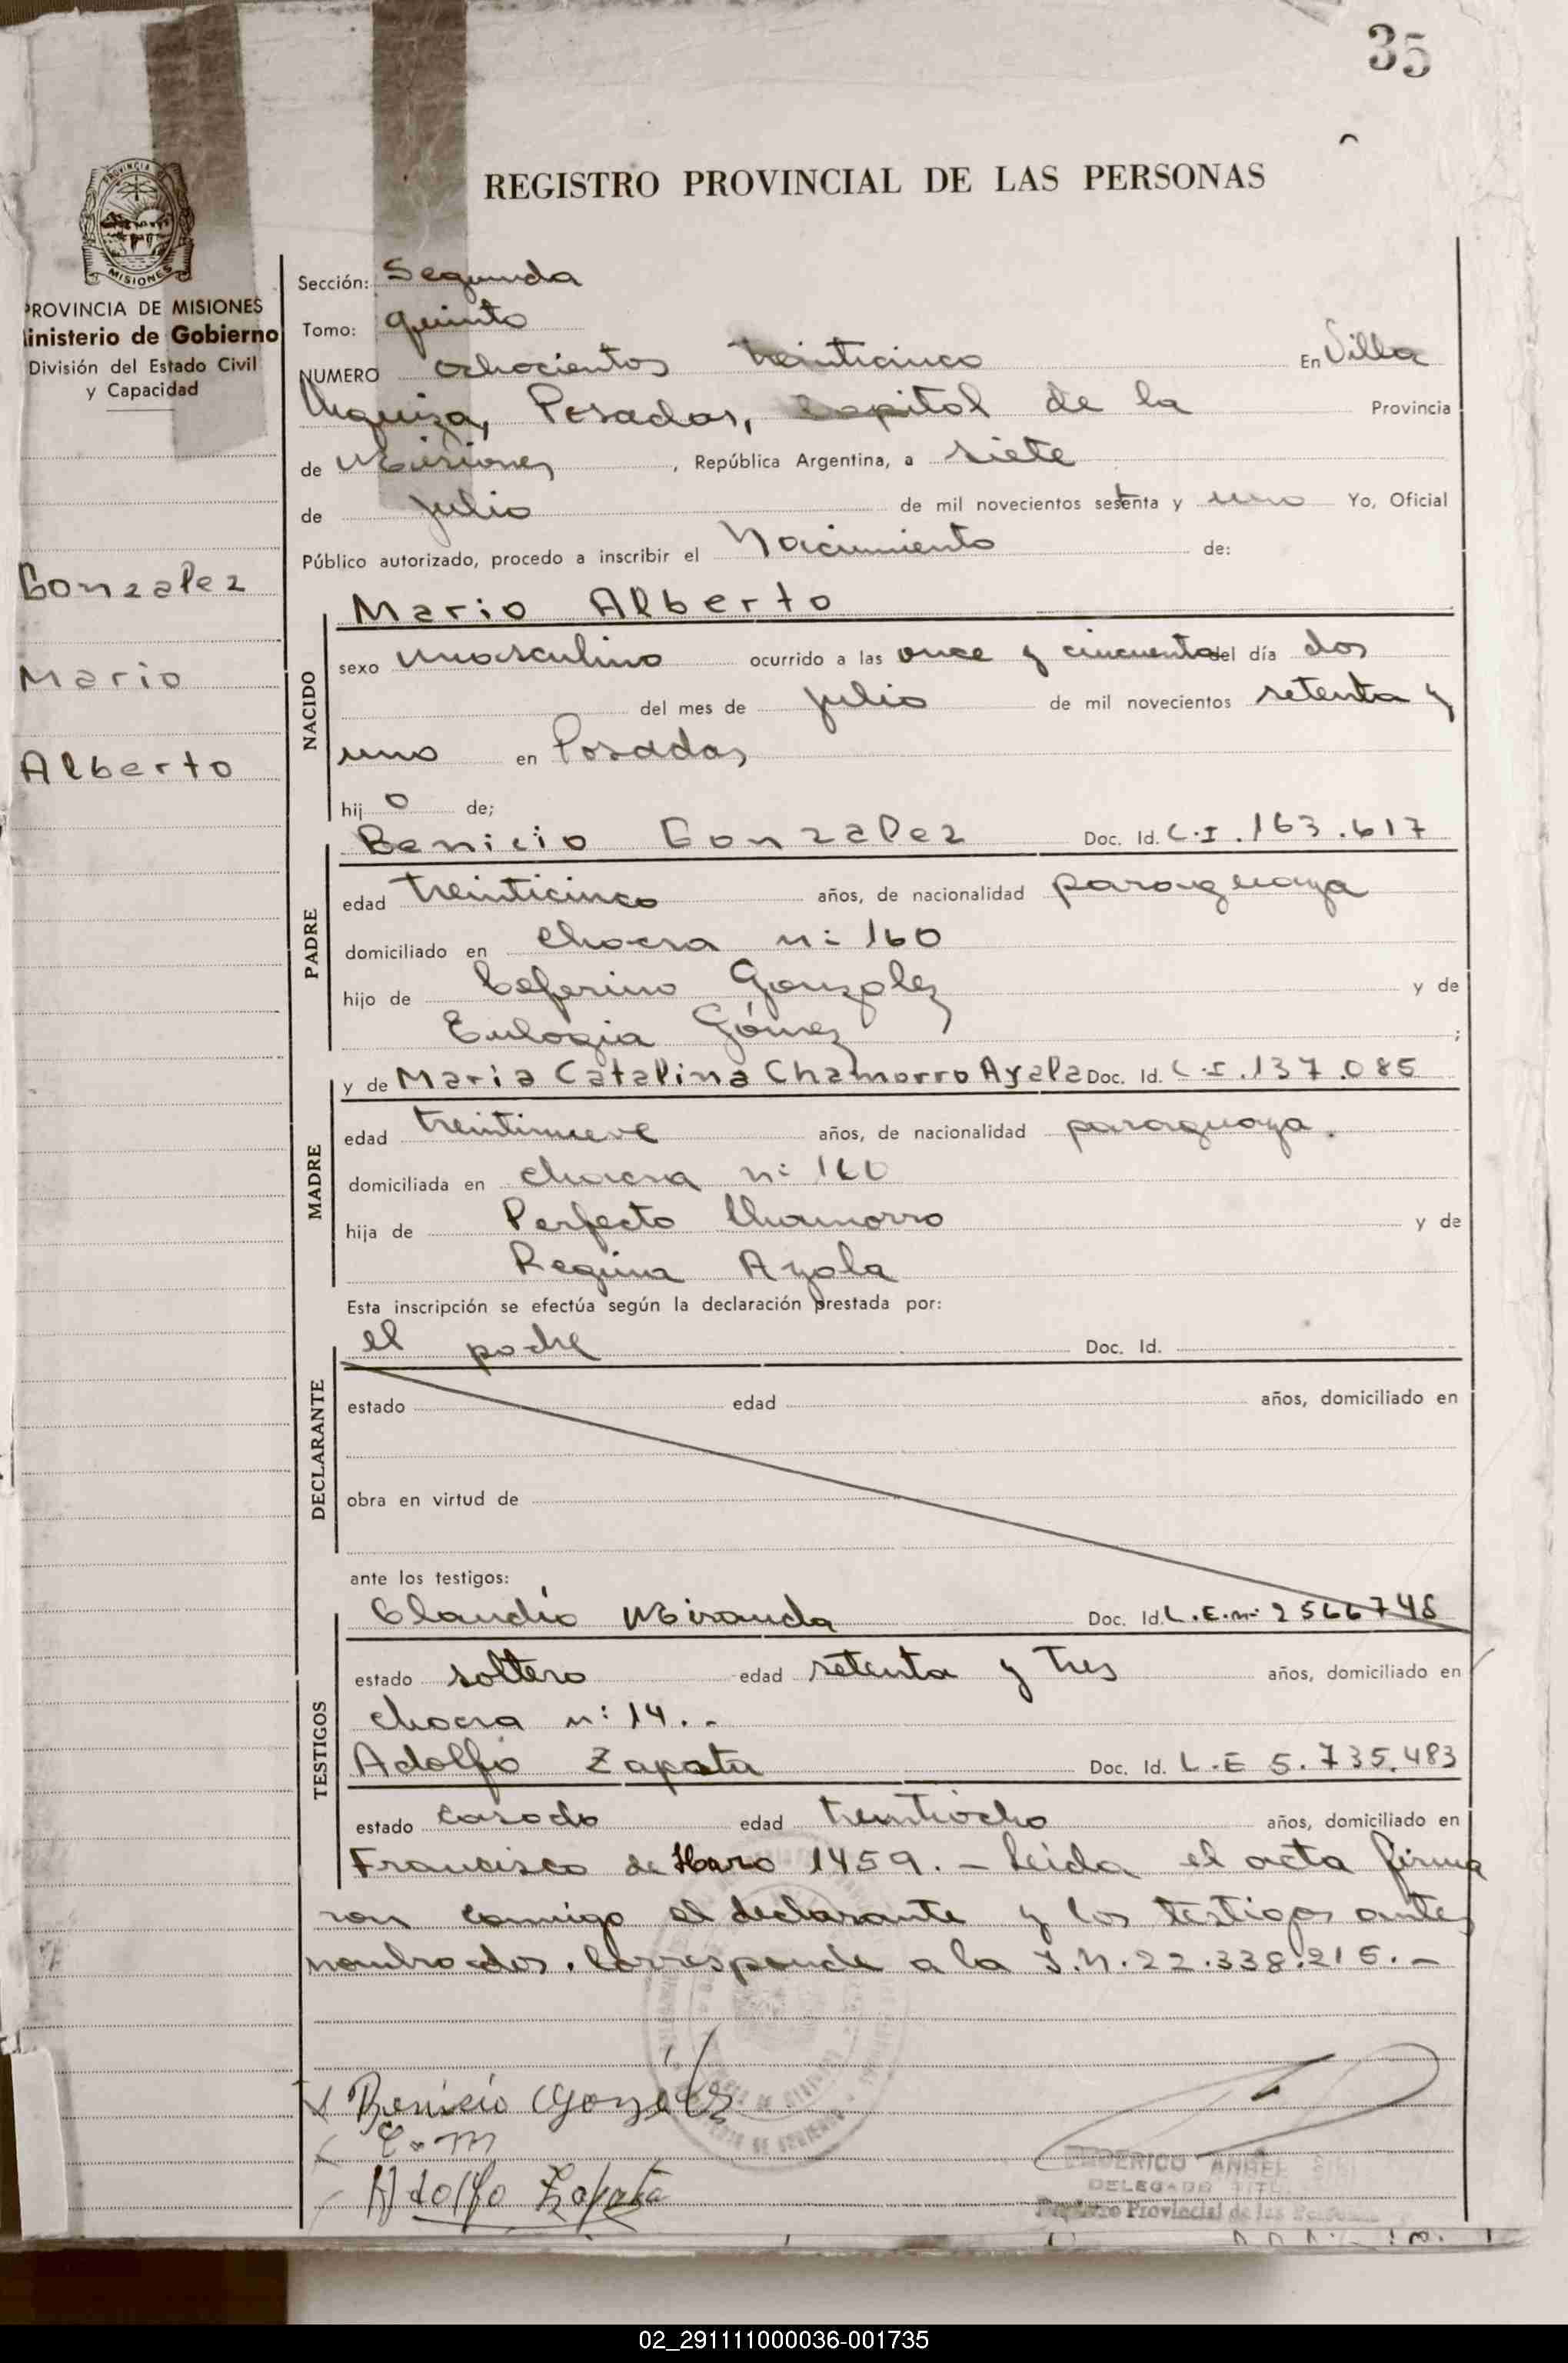 35
REGISTRO PROVINCIAL DE LAS PERSONAS
PROVINCIA DE MISIONES
Ministerio de Gobierno
División del Estado Civil
y Capacidad
Gonzalez
Mario
Alberto
Sección: Segunda
Tomo: quinto
NUMERO ochocientos treinticinco En Villa
Urquiza, Posadas, Capital de la Provincia
de Misiones, República Argentina, a siete
de julio de mil novecientos setenta y uno Yo, Oficial
Público autorizado, procedo a inscribir el Nacimiento de:
Mario Alberto
NACIDO
sexo masculino ocurrido a las once y cincuenta del día dos
del mes de julio de mil novecientos setenta y
uno en Posadas
hijo de;
Benicio Gonzalez Doc. Id. C.I. 163.617
PADRE
edad treinticinco años, de nacionalidad paraguaya
domiciliado en chacra n: 160
hijo de Ceferino Gonzalez y de
Eulogia Gómez ;
y de Maria Catalina Chamorro Ayala Doc. Id. C.I. 137.085
MADRE
edad treintinueve años, de nacionalidad paraguaya.
domiciliada en chacra n: 160
hija de Perfecto Chamorro y de
Regina Ayala
Esta inscripción se efectúa según la declaración prestada por:
el padre Doc. Id.
DECLARANTE
estado edad años, domiciliado en
obra en virtud de
ante los testigos:
Claudio Miranda Doc. Id. L.E.n: 2566748
TESTIGOS
estado soltero edad setenta y tres años, domiciliado en
chacra n: 14. -
Adolfo Zapata Doc. Id. L.E 5.735.483
estado casado edad treintiocho años, domiciliado en
Francisco de Haro 1459. - Leida el acta firma
ron conmigo el declarante y los testigos antes
nombrados. Corresponde a la I.N. 22.338.215. -
Benicio Gonzalez
C. M
Adolfo Zapata
FEDERICO ANGEL
DELEGADO
Registro Provincial de las Personas
02_291111000036-001735